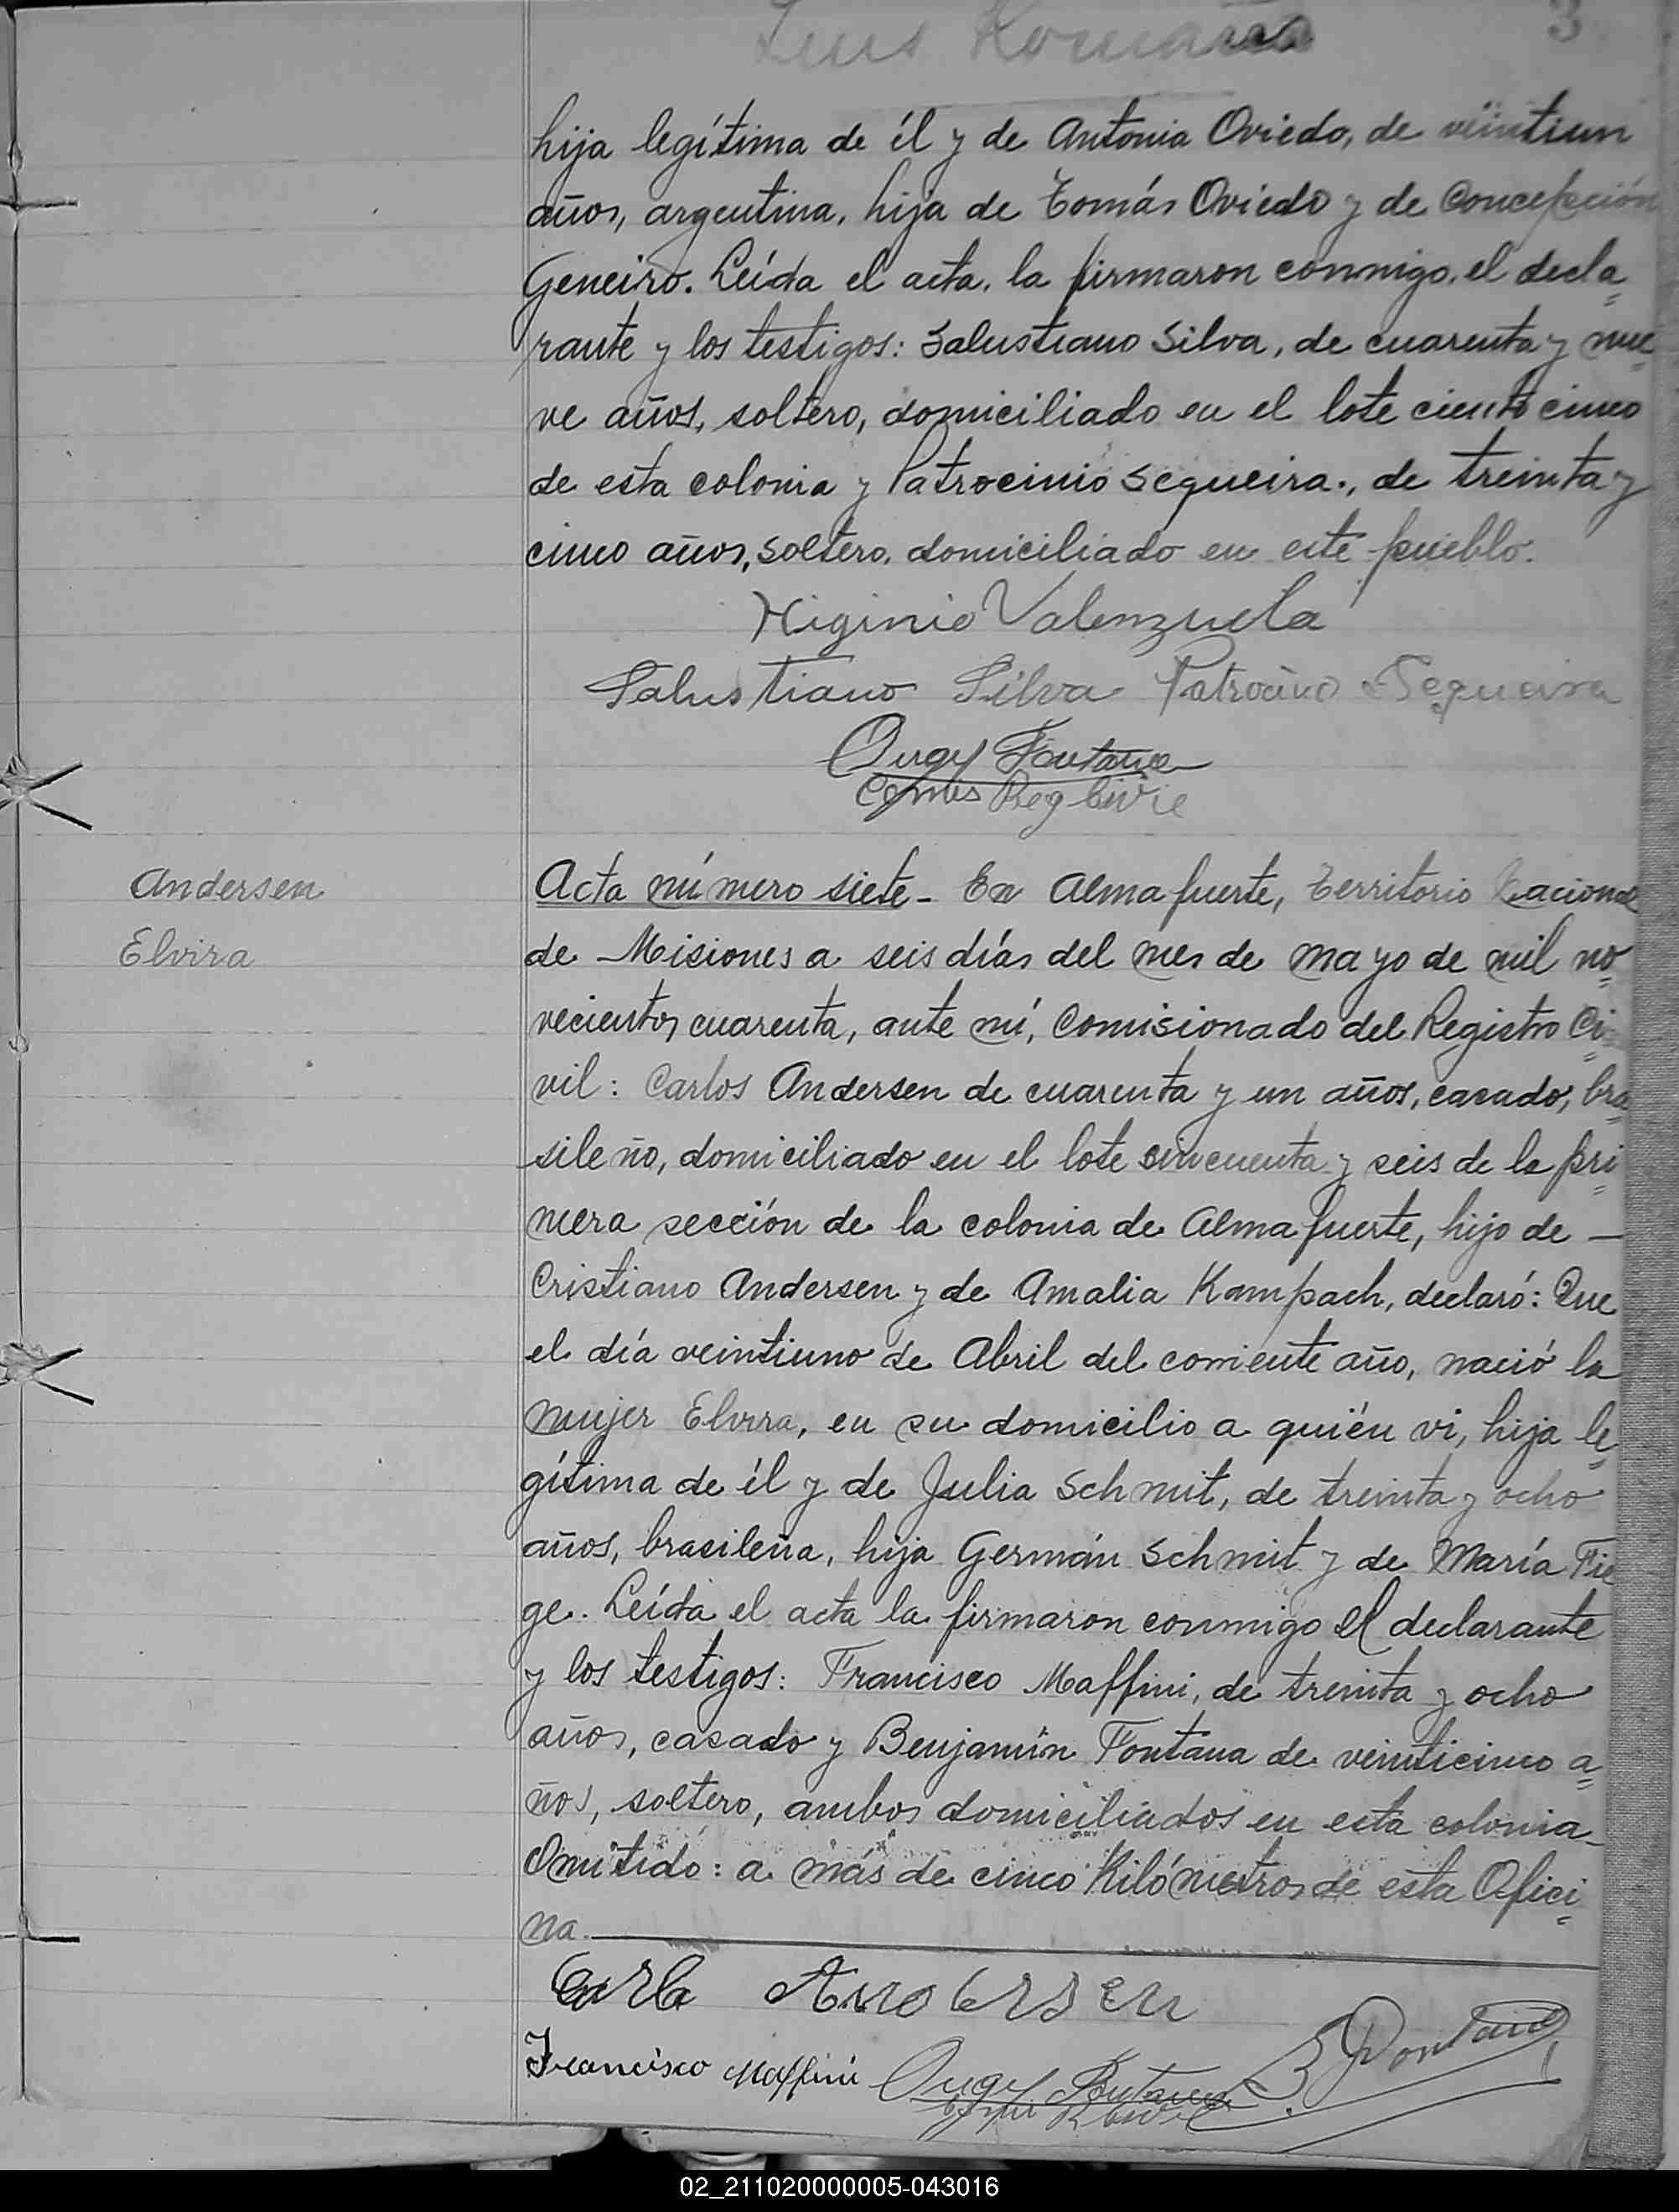 Luis Romana
3
hija legítima de él y de Antonia Oviedo, de veintiun
años, argentina, hija de Tomás Oviedo y de Concepción
Geneiro. Leída el acta, la firmaron conmigo, el decla=
rante y los testigos: Salustiano Silva, de cuarenta y nue=
ve años, soltero, domiciliado en el lote ciento cinco
de esta colonia y Patrocinio Sequeira., de treinta y
cinco años, soltero, domiciliado en este pueblo.
Higinio Valenzuela
Salustiano Silva Patrocinio Sequeira
Fontana
Comis Reg Civil
Andersen
Elvira
Acta número siete - En Almafuerte, Territorio Nacional
de Misiones a seis días del mes de mayo de mil no=
vecientos cuarenta, ante mí, Comisionado del Registro Ci=
vil: Carlos Andersen de cuarenta y un años, casado, bra=
sileño, domiciliado en el lote cincuenta y seis de la pri=
mera sección de la colonia de Almafuerte, hijo de —
Cristiano Andersen y de Amalia Kampach, declaró: Que
el día veintiuno de Abril del corriente año, nació la
mujer Elvira, en su domicilio a quién vi, hija le=
gítima de él y de Julia Schmit, de treinta y ocho
años, brasileña, hija Germán Schmit y de María Fie
ge. Leída el acta la firmaron conmigo el declarante
y los testigos: Francisco Maffini, de treinta y ocho
años, casado y Benjamín Fontana de veinticinco a=
ños, soltero, ambos domiciliados en esta colonia-
Omitido: a más de cinco Kilómetros de esta Ofici=
na.
Carlo Andersen
Francisco Maffini Fontana B Fontana
02_211020000005-043016